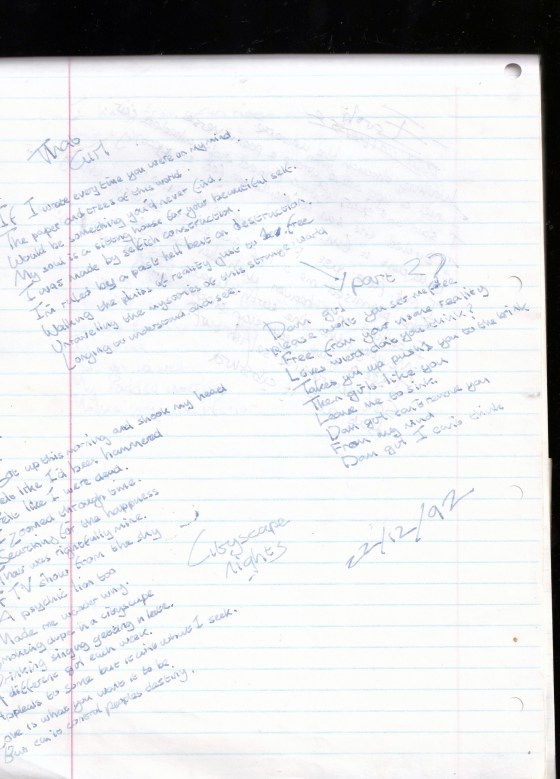 That
Girl
If I wrote everytime you were on my mind.
The paper and trees of this world.
Would be something you'd never find.
My soul is a strong house for your beautiful self.
I was made by selfish construction.
I'm ruled by a past hell bent on destruction.
Walking the plains of reality just to be free
Unraveling the mysteries of this strange world
Longing to understand and see.
part 2?
Dam girl
please won't you set me free
Free from your name reality
Loves weird don't you think?
Takes you up push's you to the brink
Then girls like you
Leave me to sink.
Dam girl can't move you
From my mind
Dam girl I can't think
up this morning and shook my head
like I'd been hammered
like I were dead.
Zoomed through time.
Searching for the happiness
That was rightfully mine.
TV show from the sky
A psychic lion too
Made me wonder why.
Smoking dope in a cityscape
Drinking singing getting in late.
different girl each week.
Appeals to some but it ain't what I seek.
Love is what you want it to be.
But can't control peoples destiny.
Cityscape
nights
22/12/92